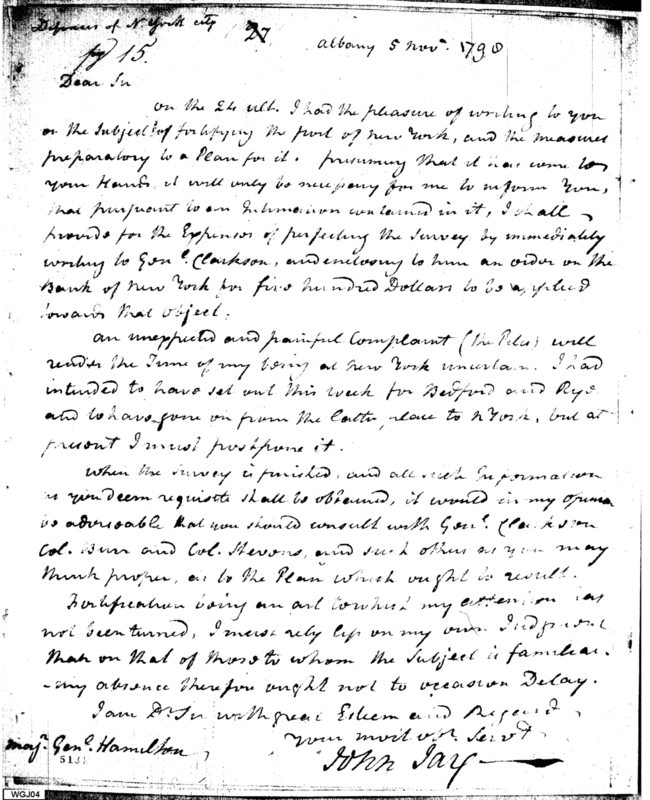 Defences of N. York city
27
Albany 5 Novr. 1798
15.
Dear Sir
on the 24 ult. I had the pleasure of writing to you
on the Subject of fortifying the port of New York, and the measures
preparatory to a Plan for it. presuming that it has come to
your Hands, it will only be necessary for me to inform You,
that pursuant to an Intimation contained in it, I shall
provide for the Expenses of perfecting the Survey by immediately
writing to Genl. Clarkson, and enclosing to him an order on the
Bank of New York for five hundred Dollars to be applied
towards that object.
an unexpected and painful Complaint (the Piles) will
render the Time of my being at New York uncertain. I had
intended to have set out this week for Bedford and Rye
and to have gone on from the latter place to NYork, but at
present I must postpone it.
when the Survey is finished, and all such Information
as you deem requisite shall be obtained, it would in my opinion
be adviseable that you should consult with Genl. Clarkson
Col. Burr and Col. Stevens, and such others as you may
think proper, as to the Plan which ought to result.
Fortification being an art to which my attention has
not been turned, I must rely less on my own Judgment
than on that of those to whom the Subject is familiar.
-my absence therefore ought not to occasion Delay.
I am Dr. Sir with great Esteem and Regard
Your most obt. Servt.
Majr. Genl. Hamilton
John Jay
5131
WGJ04